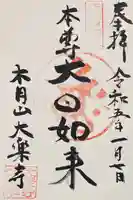 奉拝
令和五年一月七日
本尊
大日如来
木月山大楽寺